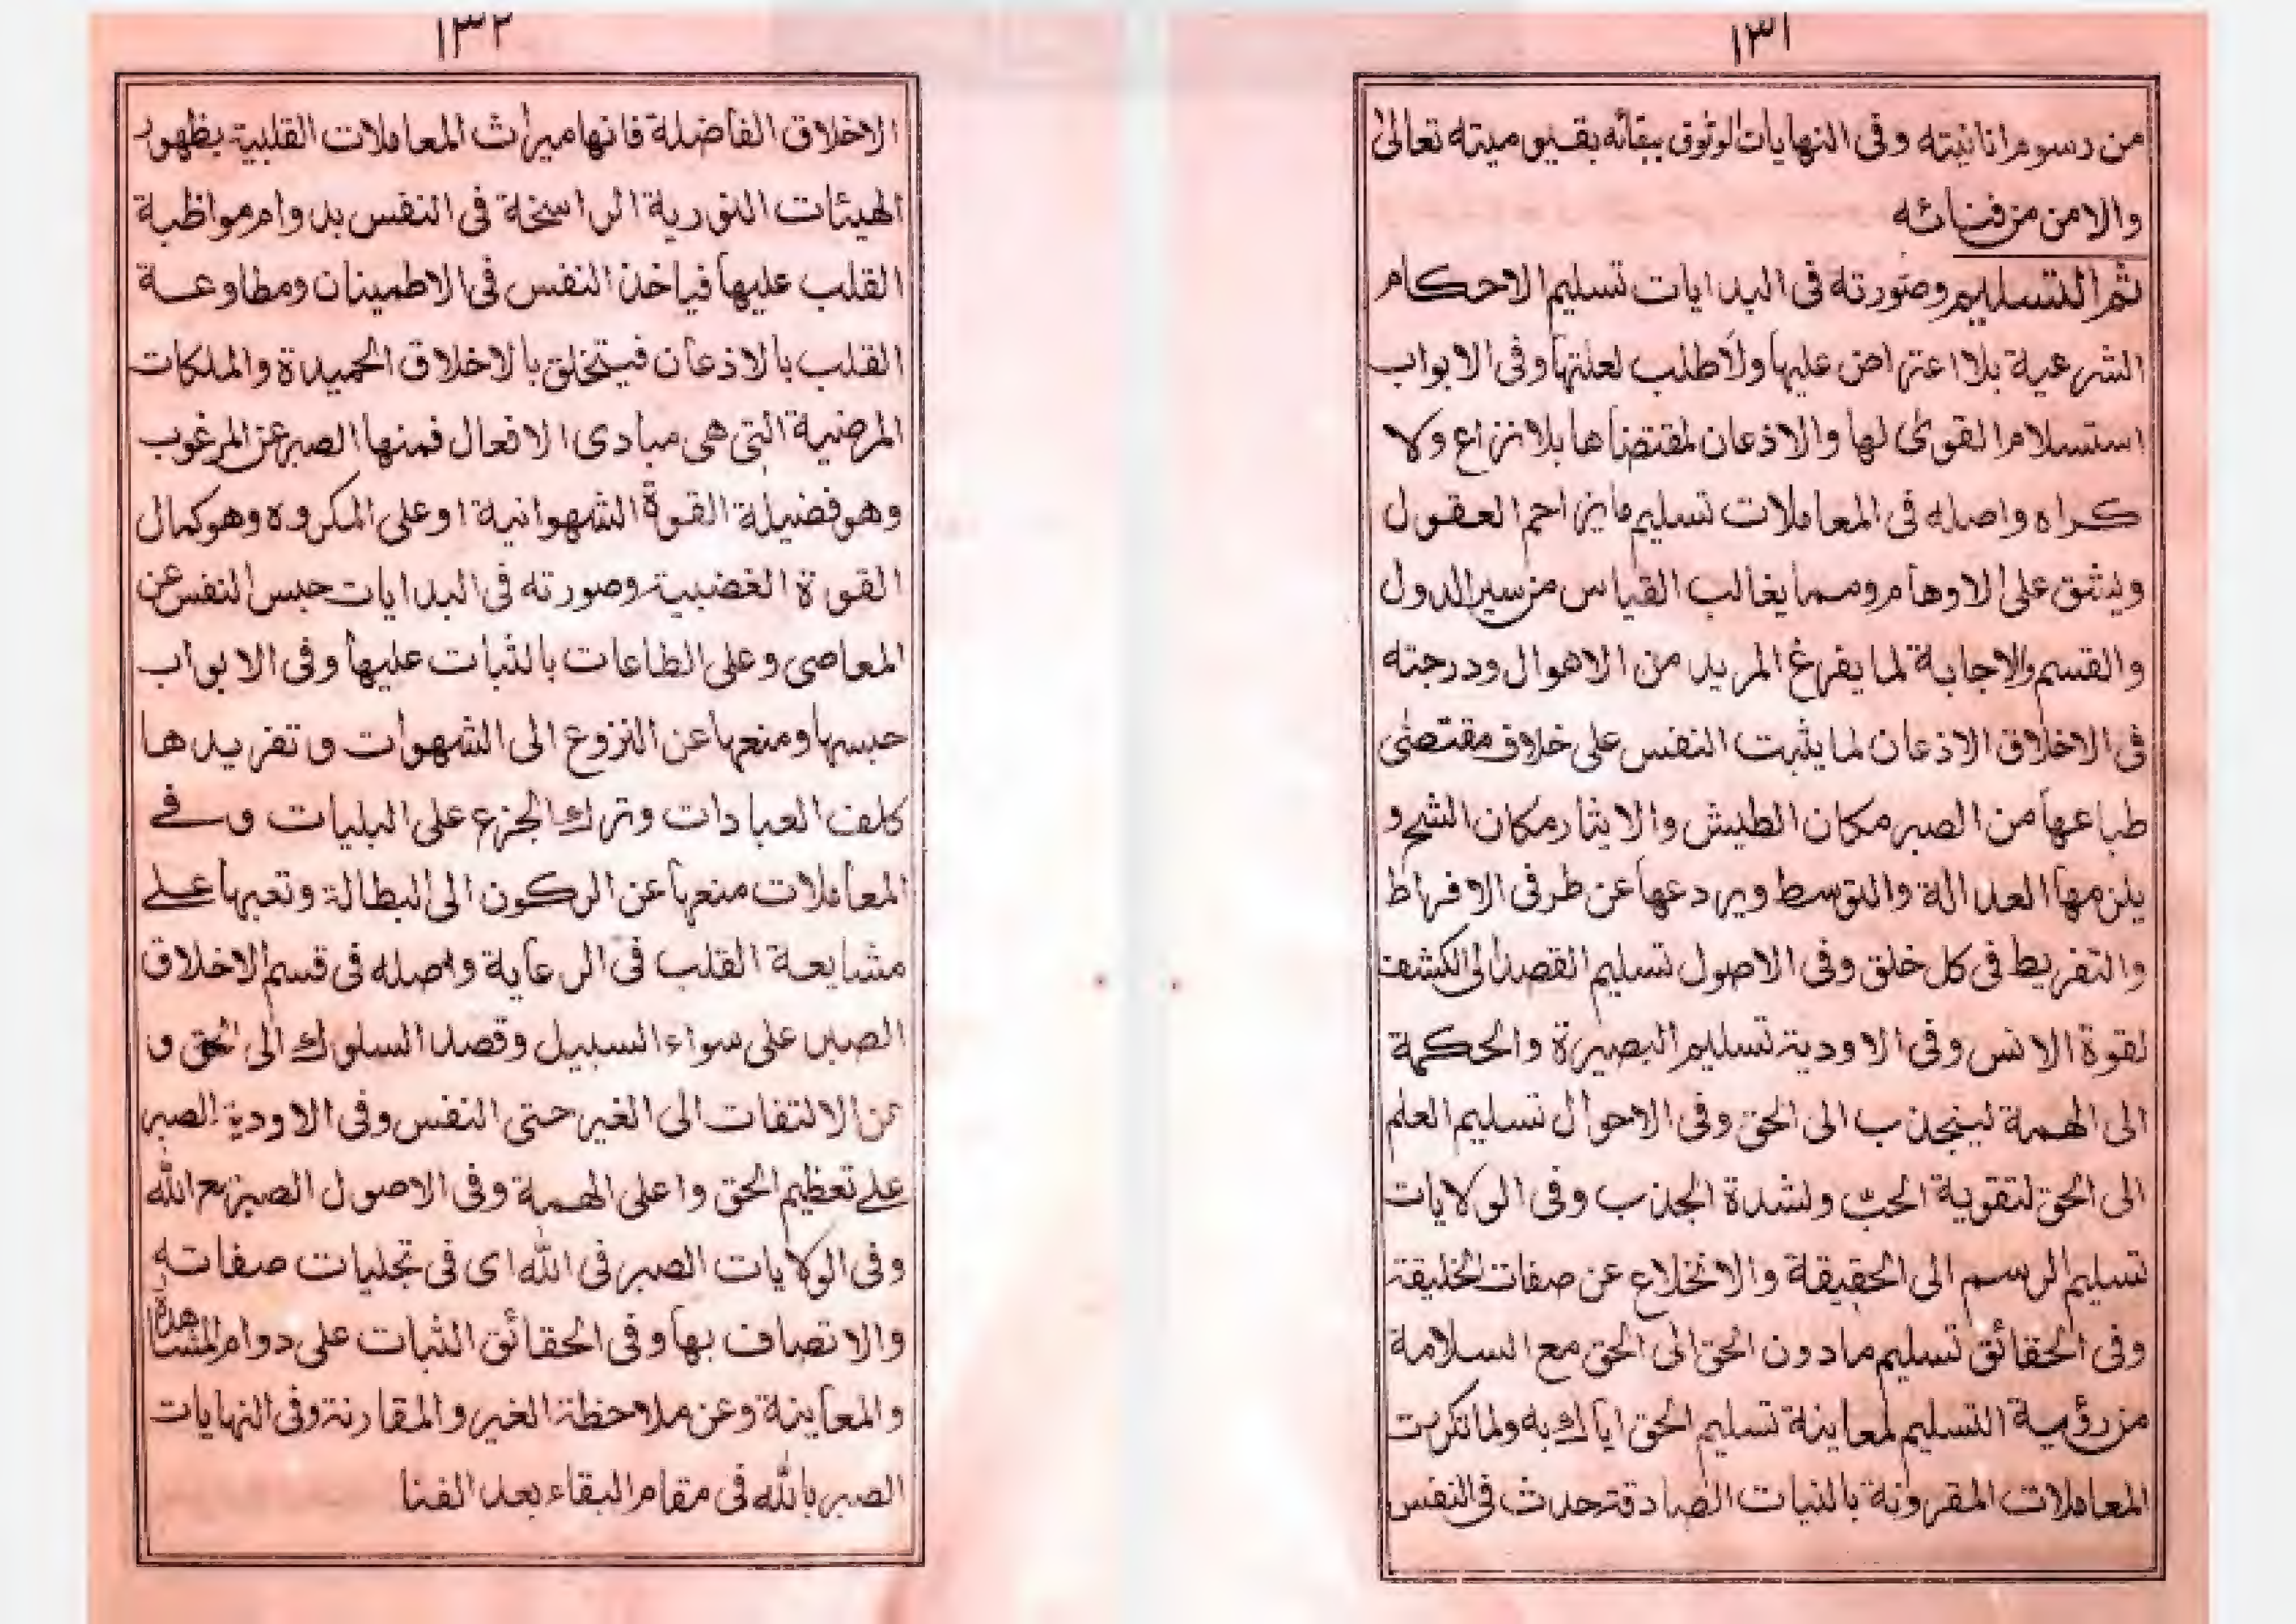 ١٣١
من رسوم انانيته وفى النهايات الوثوق ببقائه بقيوميته تعالىٰ
والامن من فنائه
ثم التسليم وصورته فى البدايات تسليم الاحكام
الشرعية بلا اعتراض عليها ولا طلب لعلتها وفى الابواب
استسلام القوىٰ لها والاذعان لمقتضاها بلا نزاع ولا
كراه واصله فى المعاملات تسليم ما يزاحم العقول
ويشق على الاوهام ومما يغالب القياس من سير الدول
والقسم والاجابة لما يفرغ المريد من الاهوال ودرجته
فى الاخلاق الاذعان لما يثبت النفس على خلاف مقتضىٰ
طباعها من الصبر مكان الطيش والايثار مكان الشح و
يلزمها العدالة والتوسط ويردعها عن طرفى الافراط
والتفريط فى كل خلق وفى الاصول تسليم القصد الى الكشف
لقوة الانس وفى الاودية تسليم البصيرة والحكمة
الى الهمة لينجذب الى الحق وفى الاحوال تسليم العلم
الى الحق لتقوية الحبّ ولشدة الجذب وفى الولايات
تسليم الرسم الى الحقيقة والانخلاع عن صفات الخليقة
وفى الحقائق تسليم مادون الحق الى الحق مع السلامة
من رؤية التسليم لمعاينة تسليم الحق اياك به ولما تكررت
المعاملات المقرونة بالنيات الصادقة تحدث فى النفس
١٣٢
الاخلاق الفاضلة فانها ميراث المعاملات القلبية بظهور
الهيئات النورية الراسخة فى النفس بدوام مواظبة
القلب عليها فياخذ النفس فى الاطمينان ومطاوعة
القلب بالاذعان فيتخلق بالاخلاق الحميدة والملكات
المرضية التى هى مبادى الافعال فمنها الصبر عن المرغوب
وهو فضيلة القوة الشهوانية او على المكروه وهو كمال
القوة الغضبية وصورته فى البدايات حبس النفس عن
المعاصى وعلى الطاعات بالثبات عليها وفى الابواب
حبسها ومنعها عن النزوع الى الشهوات و تفريدها
كلف العبادات وترك الجزع على البليات وفى
المعاملات منعها عن الركون الى البطالة وتعبها على
مشايعة القلب فى الرعاية واصله فى قسم الاخلاق
الصبر على سواء السبيل وقصد السلوك الى الحق و
عن الالتفات الى الغير حتى النفس وفى الاودية الصبر
على تعظيم الحق واعلى الهمة وفى الاصول الصبر مع الله
وفى الولايات الصبر فى الله اى فى تجليات صفاته
والاتصاف بها وفى الحقائق الثبات على دوام المشاهدة
والمعاينة وعن ملاحظة الغير والمقارنة وفى النهايات
الصبر بالله فى مقام البقاء بعد الفنا